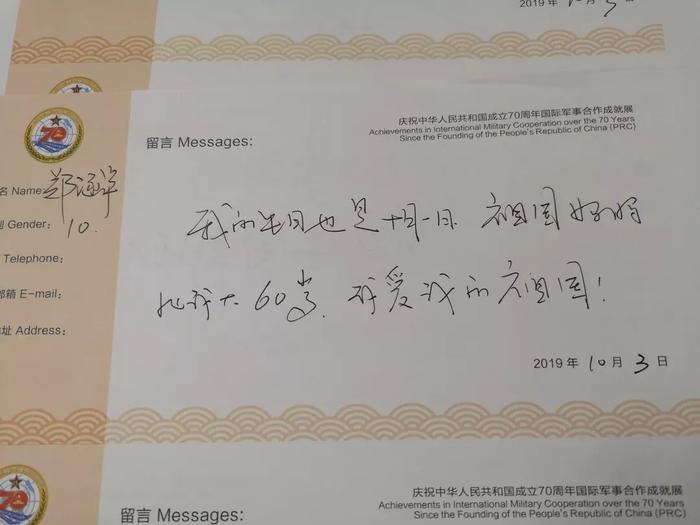 2019 年
留言 Messages:
庆祝中华人民共和国成立70周年国际军事合作成就展
Achievements in International Military Cooperation over the 70 Years
Since the Founding of the People's Republic of China (PRC)
名 Name:
别 Gender: 10.
Telephone:
邮箱 E-mail:
址 Address:
我的生日也是十月一日. 祖国妈妈
比我大60岁. 我爱我的祖国!
2019 年 10 月 3 日
庆祝中华人民共和国成立70周年国际军事合作成就展
Achievements in International Military Cooperation over the 70 Years
Since the Founding of the People's Republic of China (PRC)
留言 Messages: